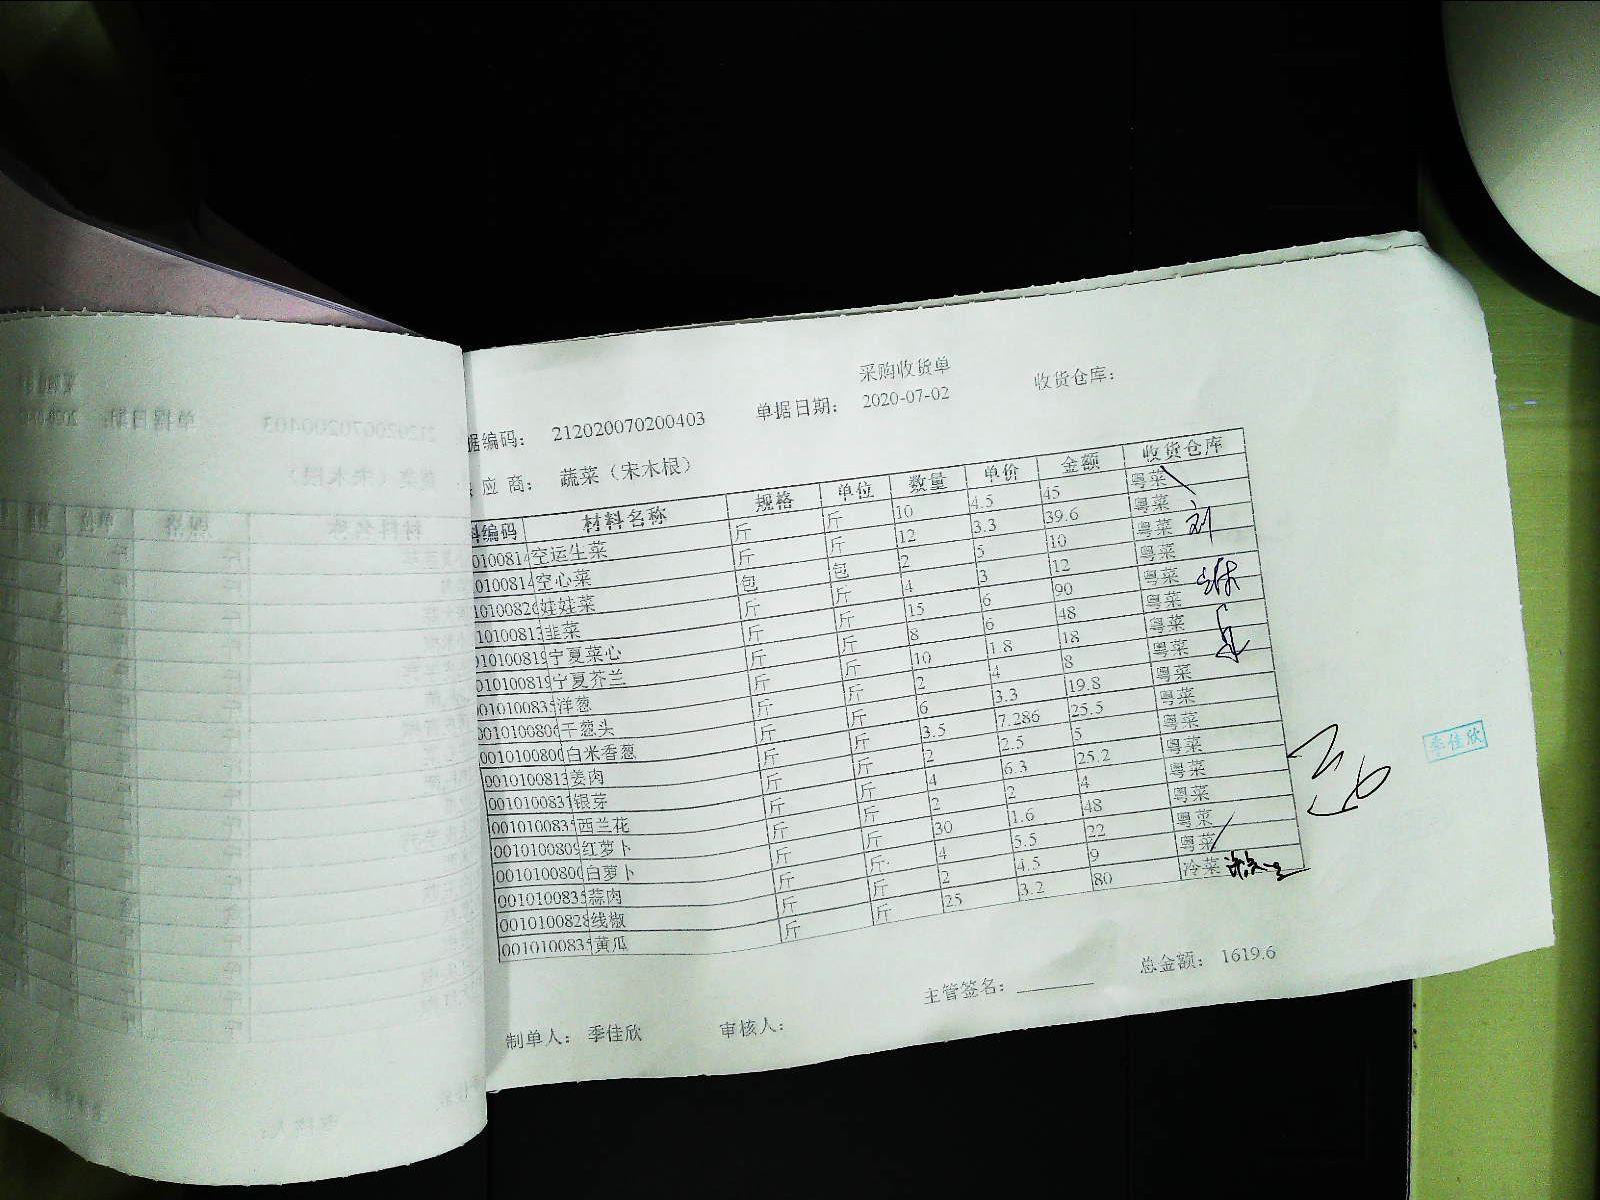 采购收货单
据编码： 212020070200403 单据日期： 2020-07-02 收货仓库：
应 商： 蔬菜（宋木根）
料编码 材料名称 规格 单位 数量 单价 金额 收货仓库
01010081 空运生菜 斤 斤 10 4.5 45 粤菜
01010081 空心菜 斤 斤 12 3.3 39.6 粤菜
1010082 娃娃菜 包 包 2 5 10 粤菜
10100813 韭菜 斤 斤 4 3 12 粤菜
01010081 宁夏菜心 斤 斤 15 6 90 粤菜
01010081 宁夏芥兰 斤 斤 8 6 48 粤菜
00101008 洋葱 斤 斤 10 1.8 18 粤菜
00101008 干葱头 斤 斤 2 4 8 粤菜
00101008 白米香葱 斤 斤 6 3.3 19.8 粤菜
0010100813 姜肉 斤 斤 3.5 7.286 25.5 粤菜
001010083 银芽 斤 斤 2 2.5 5 粤菜
001010083 西兰花 斤 斤 4 6.3 25.2 粤菜
001010080 红萝卜 斤 斤 2 2 4 粤菜
001010080 白萝卜 斤 斤 30 1.6 48 粤菜
001010083 蒜肉 斤 斤 4 5.5 22 粤菜
001010082 线椒 斤 斤 2 4.5 9 粤菜
001010083 黄瓜 斤 斤 25 3.2 80 冷菜
季佳欣
主管签名： 总金额： 1619.6
制单人： 季佳欣 审核人：